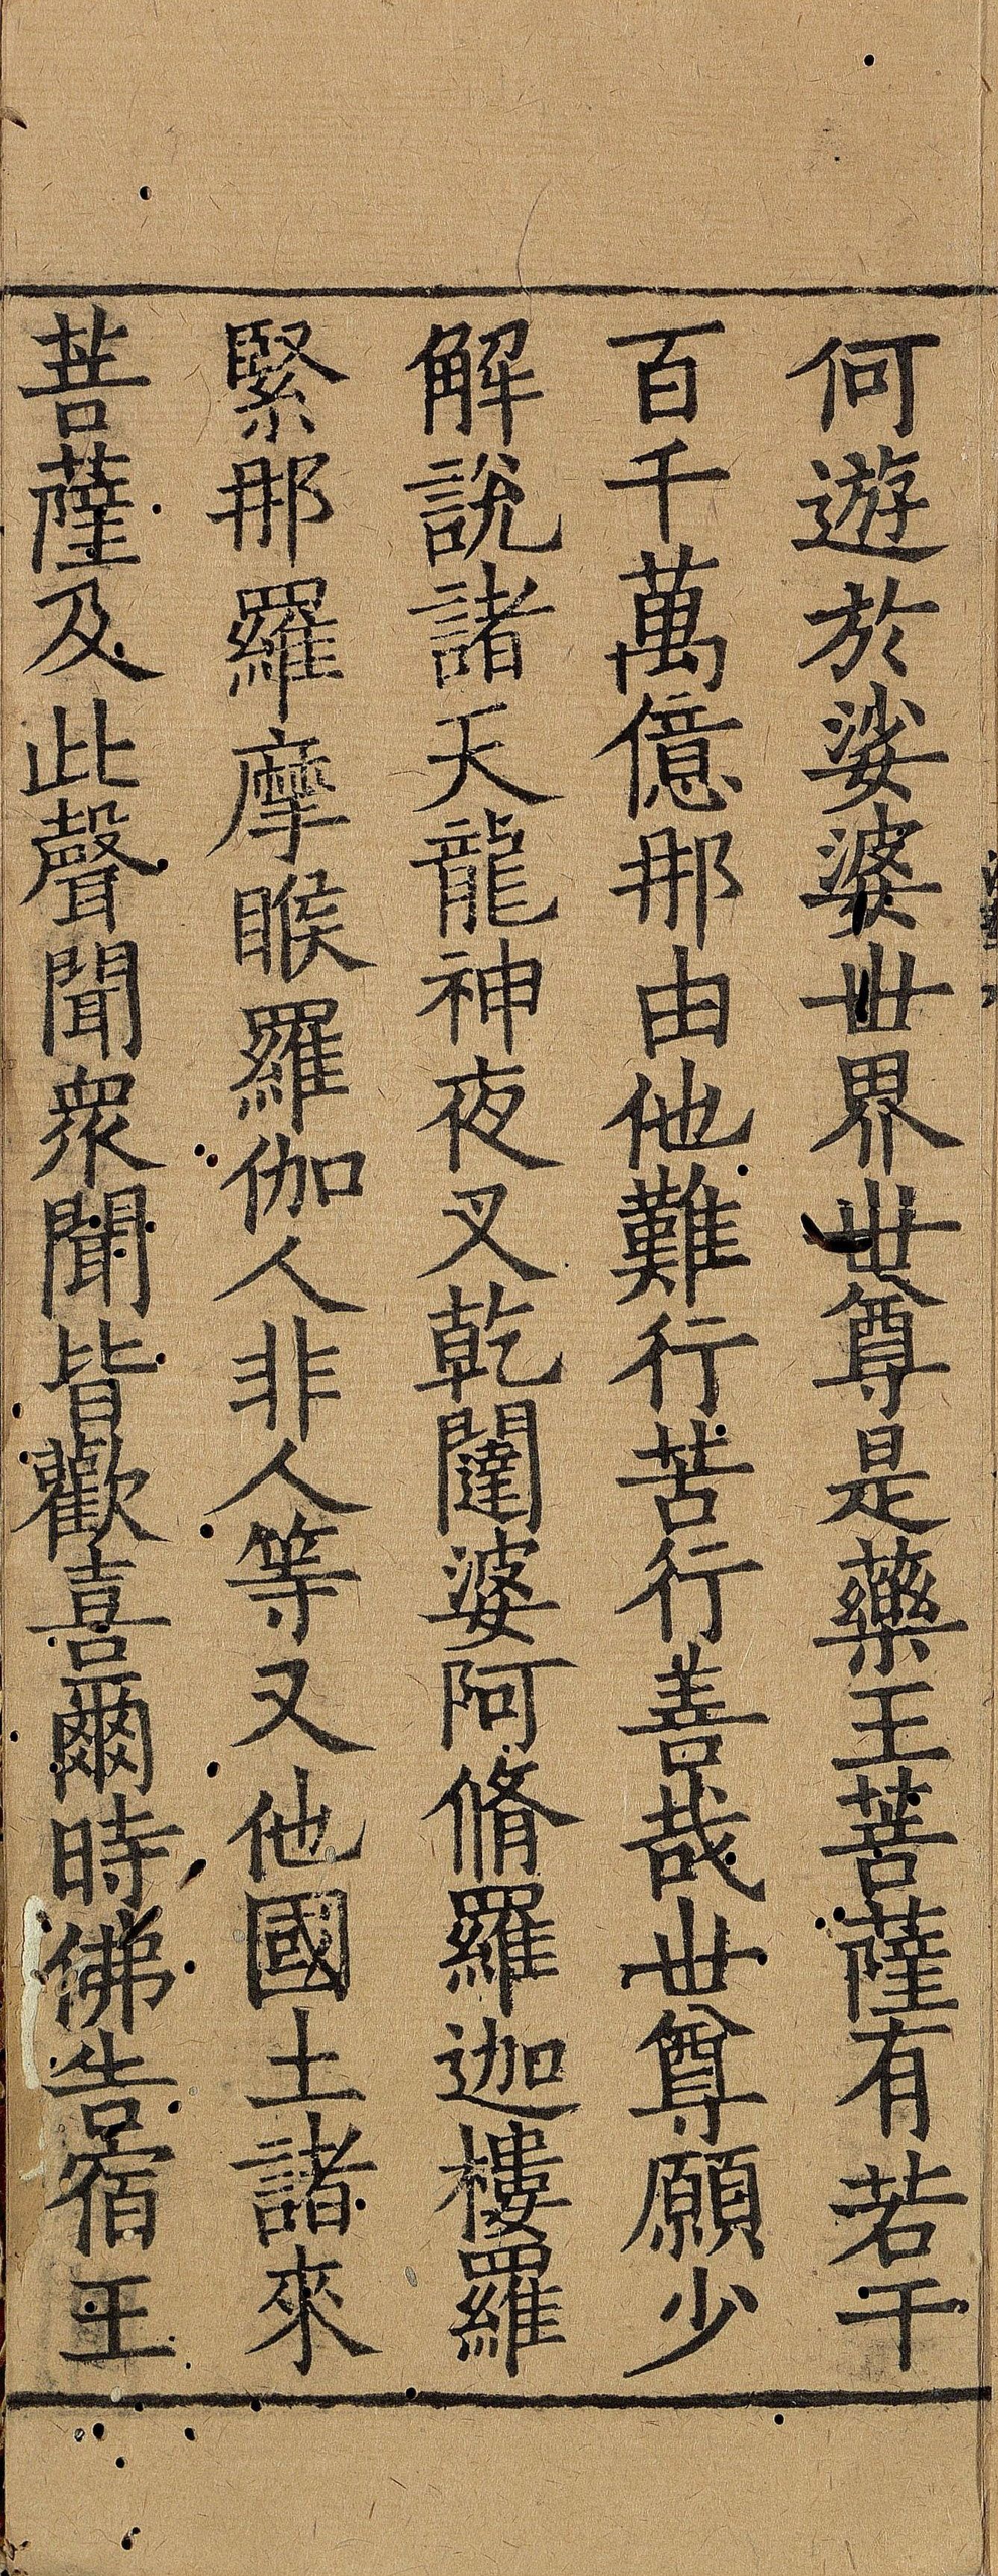 何遊於娑婆世界世尊是藥王菩薩有若干
百千萬億那由他難行苦行善哉世尊願少
解說諸天龍神夜叉乾闥婆阿脩羅迦樓羅
緊那羅摩睺羅伽人非人等又他國土諸來
菩薩及此聲聞衆聞皆歡喜爾時佛告宿王